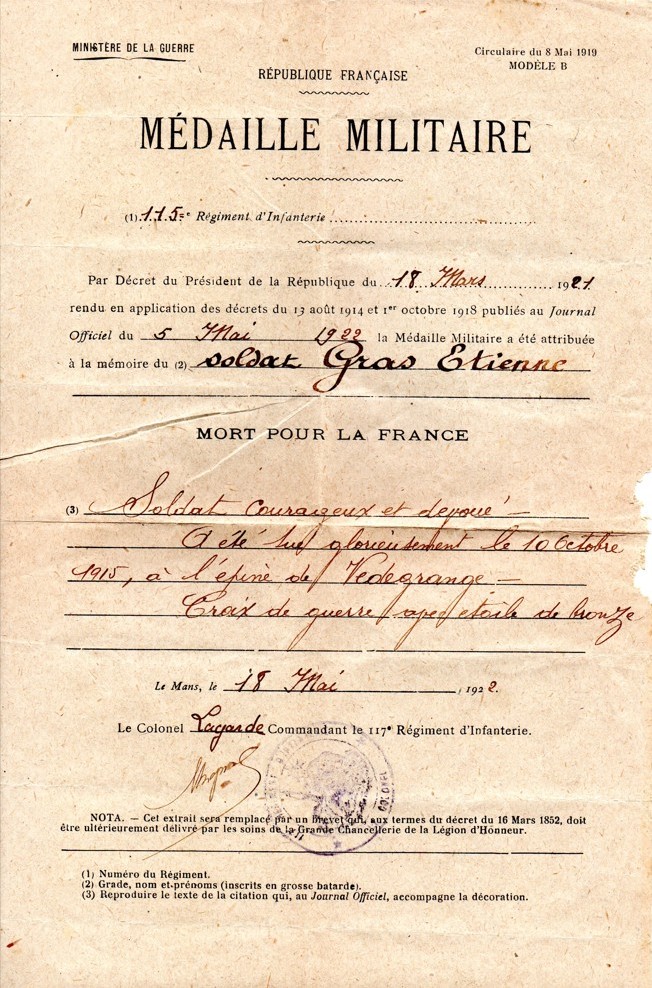 MINISTÈRE DE LA GUERRE
Circulaire du 8 Mai 1919
MODÈLE B
RÉPUBLIQUE FRANÇAISE
MÉDAILLE MILITAIRE
(1) 115e Régiment d'Infanterie
Par Décret du Président de la République du 18 Mars 1921
rendu en application des décrets du 13 août 1914 et 1er octobre 1918 publiés au Journal
Officiel du 5 Mai 1922 la Médaille Militaire a été attribuée
à la mémoire du (2) soldat Gras Etienne
MORT POUR LA FRANCE
(3) Soldat courageux et dévoué -
A été tué glorieusement le 10 Octobre
1915, à l'épine de Vedegrange -
Croix de guerre avec étoile de bronze
Le Mans, le 18 Mai 1922.
Le Colonel Lagarde Commandant le 117e Régiment d'Infanterie.
COLONEL
NOTA. — Cet extrait sera remplacé par un brevet qui, aux termes du décret du 16 Mars 1852, doit
être ultérieurement délivré par les soins de la Grande Chancellerie de la Légion d'Honneur.
(1) Numéro du Régiment.
(2) Grade, nom et prénoms (inscrits en grosse batarde).
(3) Reproduire le texte de la citation qui, au Journal Officiel, accompagne la décoration.